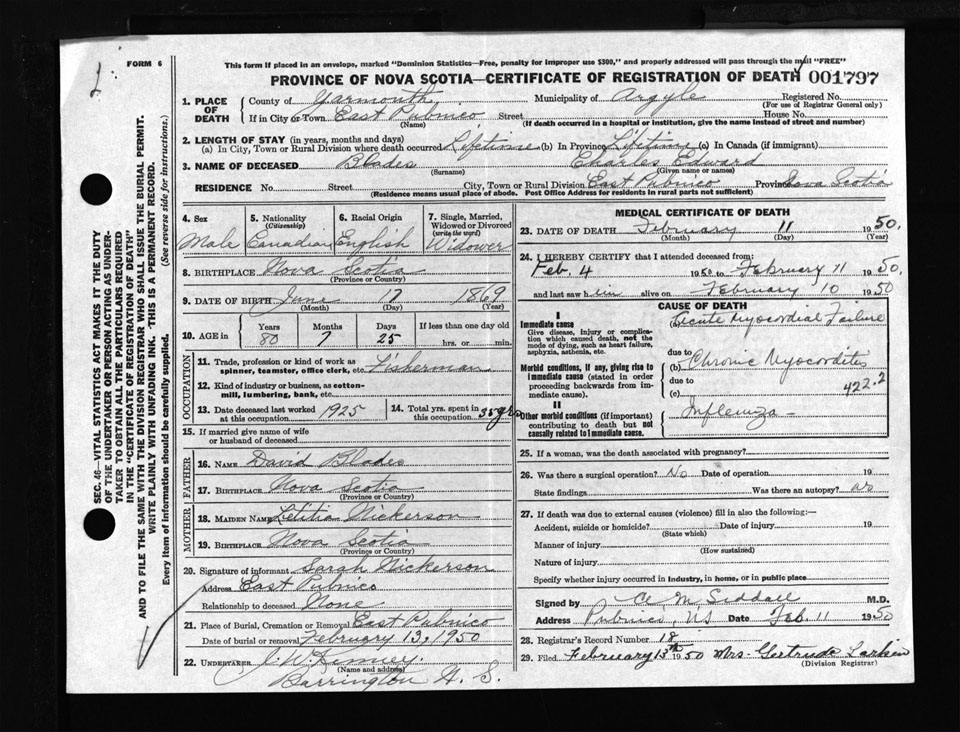 FORM 6
This form if placed in an envelope, marked "Dominion Statistics—Free, penalty for improper use $300," and properly addressed will pass through the mail "FREE"
PROVINCE OF NOVA SCOTIA—CERTIFICATE OF REGISTRATION OF DEATH 001797
SEC. 46—VITAL STATISTICS ACT MAKES IT THE DUTY
OF THE UNDERTAKER OR PERSON ACTING AS UNDER-
TAKER TO OBTAIN ALL THE PARTICULARS REQUIRED
IN THE "CERTIFICATE OF REGISTRATION OF DEATH"
AND TO FILE THE SAME WITH THE DIVISION REGISTRAR WHO SHALL ISSUE THE BURIAL PERMIT.
WRITE PLAINLY WITH UNFADING INK. THIS IS A PERMANENT RECORD.
Every item of information should be carefully supplied. (See reverse side for instructions.)
1. PLACE OF DEATH
County of Yarmouth Municipality of Argyle Registered No.
(For use of Registrar General only)
If in City or Town East Pubnico Street House No.
(Name) (If death occurred in a hospital or institution, give the name instead of street and number)
2. LENGTH OF STAY (in years, months and days)
(a) In City, Town or Rural Division where death occurred Lifetime (b) In Province Lifetime (c) In Canada (if immigrant)
3. NAME OF DECEASED Blades Charles Edward
(Surname) (Given name or names)
RESIDENCE No. Street City, Town or Rural Division East Pubnico Province Nova Scotia
(Residence means usual place of abode. Post Office Address for residents in rural parts not sufficient)
4. Sex
Male
5. Nationality
(Citizenship)
Canadian
6. Racial Origin
English
7. Single, Married,
Widowed or Divorced
(write the word)
Widower
8. BIRTHPLACE Nova Scotia
(Province or Country)
9. DATE OF BIRTH June 17 1869
(Month) (Day) (Year)
10. AGE in
Years Months Days If less than one day old
80 7 25 hrs. or min.
OCCUPATION
11. Trade, profession or kind of work as
spinner, teamster, office clerk, etc. Fisherman
12. Kind of industry or business, as cotton-
mill, lumbering, bank, etc.
13. Date deceased last worked
at this occupation 1925
14. Total yrs. spent in
this occupation 35 yrs
15. If married give name of wife
or husband of deceased
FATHER
16. NAME David Blades
17. BIRTHPLACE Nova Scotia
(Province or Country)
MOTHER
18. MAIDEN NAME Letitia Nickerson
19. BIRTHPLACE Nova Scotia
(Province or Country)
20. Signature of informant Sarah Nickerson
Address East Pubnico
Relationship to deceased None
21. Place of Burial, Cremation or Removal East Pubnico
Date of burial or removal February 13, 1950
22. UNDERTAKER
(Name and address)
Barrington N. S.
MEDICAL CERTIFICATE OF DEATH
23. DATE OF DEATH February 11 1950.
(Month) (Day) (Year)
24. I HEREBY CERTIFY that I attended deceased from:
Feb. 4 1950 to February 11 1950,
and last saw him alive on February 10 1950
CAUSE OF DEATH
I
Immediate cause
Give disease, injury or complica-
tion which caused death, not the
mode of dying, such as heart failure,
asphyxia, asthenia, etc.
(a) Acute Myocardial Failure
due to
Morbid conditions, if any, giving rise to
immediate cause (stated in order
proceeding backwards from im-
mediate cause).
(b) Chronic Myocarditis
due to
(c) 422.2
II
Other morbid conditions (if important)
contributing to death but not
causally related to immediate cause.
Influenza
25. If a woman, was the death associated with pregnancy?
26. Was there a surgical operation? No Date of operation 19
State findings Was there an autopsy? no
27. If death was due to external causes (violence) fill in also the following:—
Accident, suicide or homicide? Date of injury 19
(State which)
Manner of injury
(How sustained)
Nature of injury
Specify whether injury occurred in industry, in home, or in public place
Signed by C M Siddall M.D.
Address Pubnico, NS Date Feb. 11 1950
28. Registrar's Record Number 18
29. Filed February 13th 1950 Mrs. Gertrude Larkin
(Division Registrar)